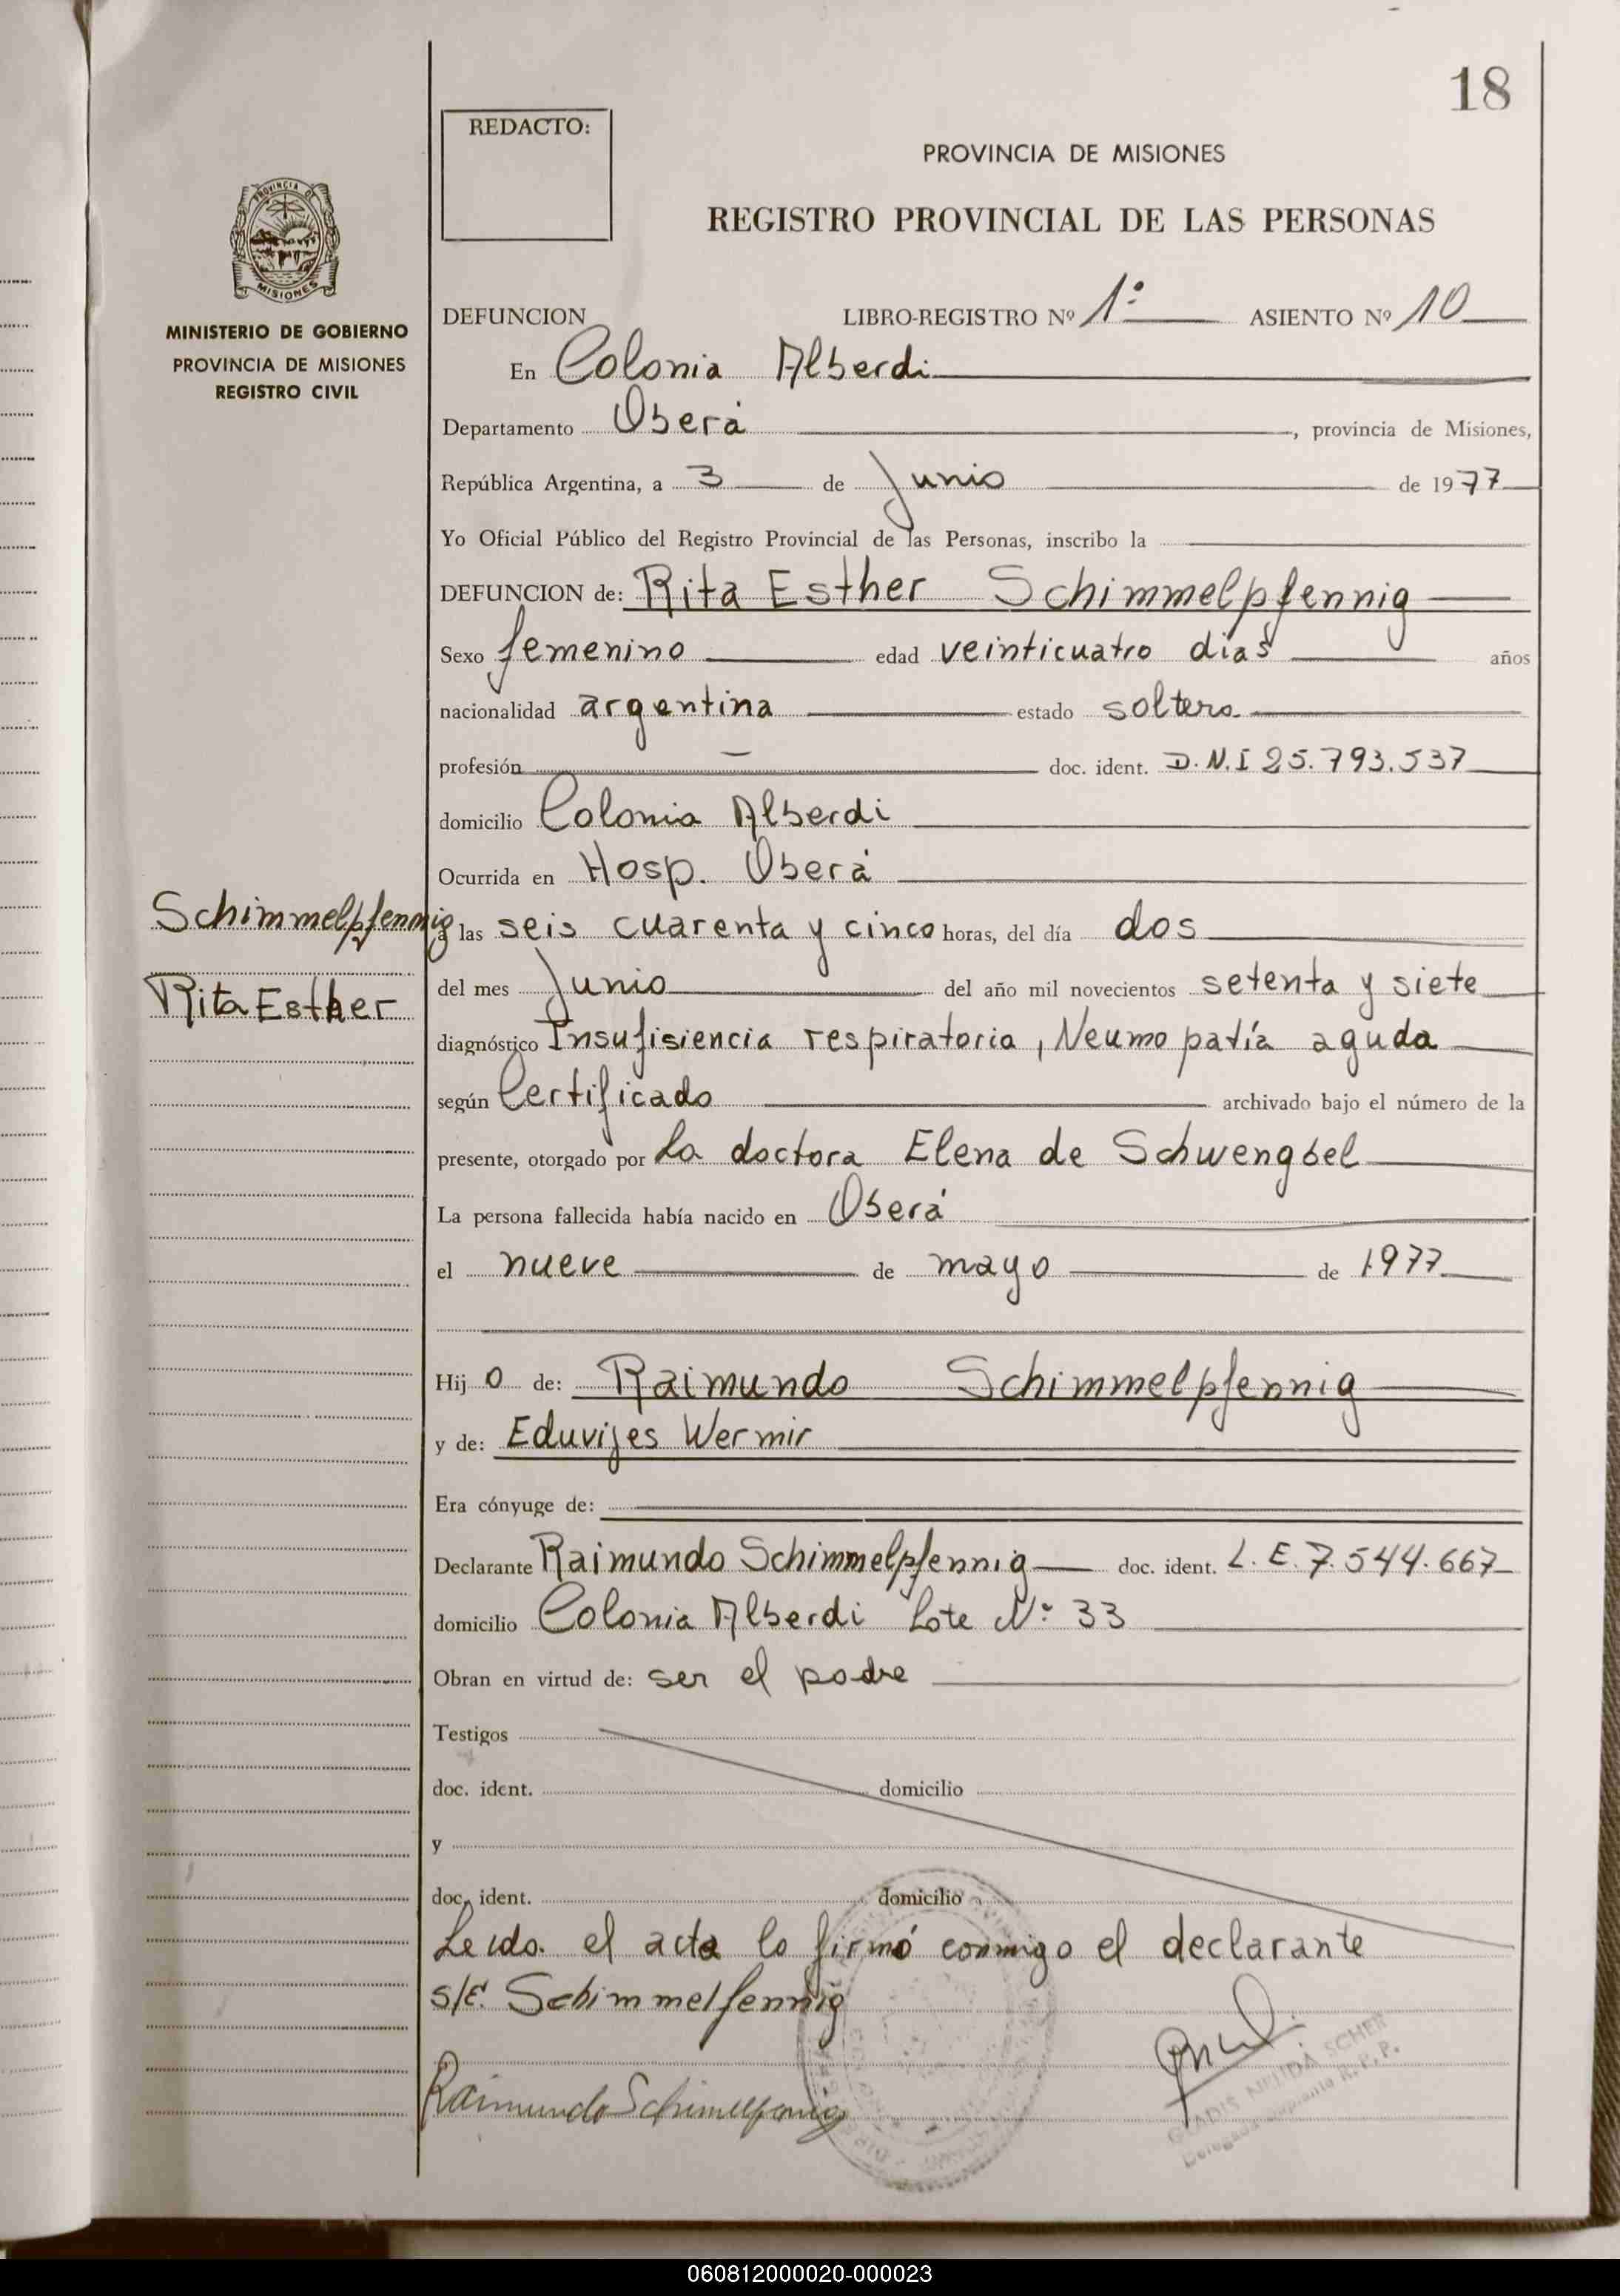 18
REDACTO:
PROVINCIA DE MISIONES
REGISTRO PROVINCIAL DE LAS PERSONAS
PROVINCIA DE
MISIONES
MINISTERIO DE GOBIERNO
PROVINCIA DE MISIONES
REGISTRO CIVIL
DEFUNCION LIBRO-REGISTRO Nº 1º ASIENTO Nº 10
En Colonia Alberdi
Departamento Oberá, provincia de Misiones,
República Argentina, a 3 de Junio de 1977
Yo Oficial Público del Registro Provincial de las Personas, inscribo la
DEFUNCION de: Rita Esther Schimmelpfennig
Sexo femenino edad veinticuatro dias años
nacionalidad argentina estado soltero
profesión — doc. ident. D.N.I 25.793.537
domicilio Colonia Alberdi
Ocurrida en Hosp. Oberá
Schimmelpfennig
Rita Esther
a las seis cuarenta y cinco horas, del día dos
del mes Junio del año mil novecientos setenta y siete
diagnóstico Insufisiencia respiratoria, Neumopatía aguda
según Certificado archivado bajo el número de la
presente, otorgado por la doctora Elena de Schwengbel
La persona fallecida había nacido en Oberá
el nueve de mayo de 1977
Hijo de: Raimundo Schimmelpfennig
y de: Eduvijes Wermir
Era cónyuge de:
Declarante Raimundo Schimmelpfennig doc. ident. L.E. 7.544.667
domicilio Colonia Alberdi Lote Nº 33
Obran en virtud de: ser el padre
Testigos
doc. ident. domicilio
y
doc. ident. domicilio
Leida el acta lo firmó conmigo el declarante
s/E. Schimmelfennig
Raimundo Schimelpfenig
GLADIS NELIDA SCHER
Delegada Suplente R.P.P.
060812000020-000023